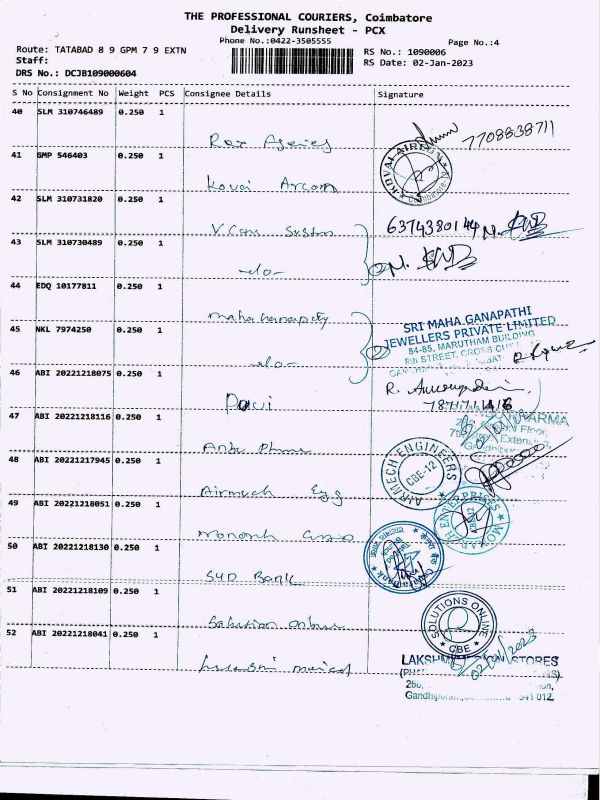 THE PROFESSIONAL COURIERS, Coimbatore
Delivery Runsheet - PCX
Phone No.:0422-3505555
Page No.:4
Route: TATABAD 8 9 GPM 7 9 EXTN
RS No.: 1090006
Staff:
RS Date: 02-Jan-2023
DRS No.: DCJB109000604
S No Consignment No Weight PCS Consignee Details Signature
40 SLM 310746489 0.250 1
7708838711
41 GMP 546403 0.250 1
KOVAI
Kovai
42 SLM 310731820 0.250 1
V Care System 6374380144
43 SLM 310730489 0.250 1
-do- N.
44 EDQ 10177811 0.250 1
maha Ganapaty
SRI MAHA GANAPATHI
JEWELLERS PRIVATE LIMITED
84-85, MARUTHAM BUILDING
8th STREET, CROSS CUT
45 NKL 7974250 0.250 1
-do-
46 ABI 20221218075 0.250 1
R.
47 ABI 20221218116 0.250 1
PHARMA
Floor,
Extension,
Anbu Pharma
48 ABI 20221217945 0.250 1
AIRMECH ENGINEERS
CBE-12
Airmech Engg
49 ABI 20221218051 0.250 1
MONARCH ENTERPRISES
Monarch
50 ABI 20221218130 0.250 1
SYD Bank
51 ABI 20221218109 0.250 1
SOLUTIONS ONLINE
CBE
Solution online
52 ABI 20221218041 0.250 1
02/01/2023
LAKSHMI STORES
Gandhipuram, 641 012